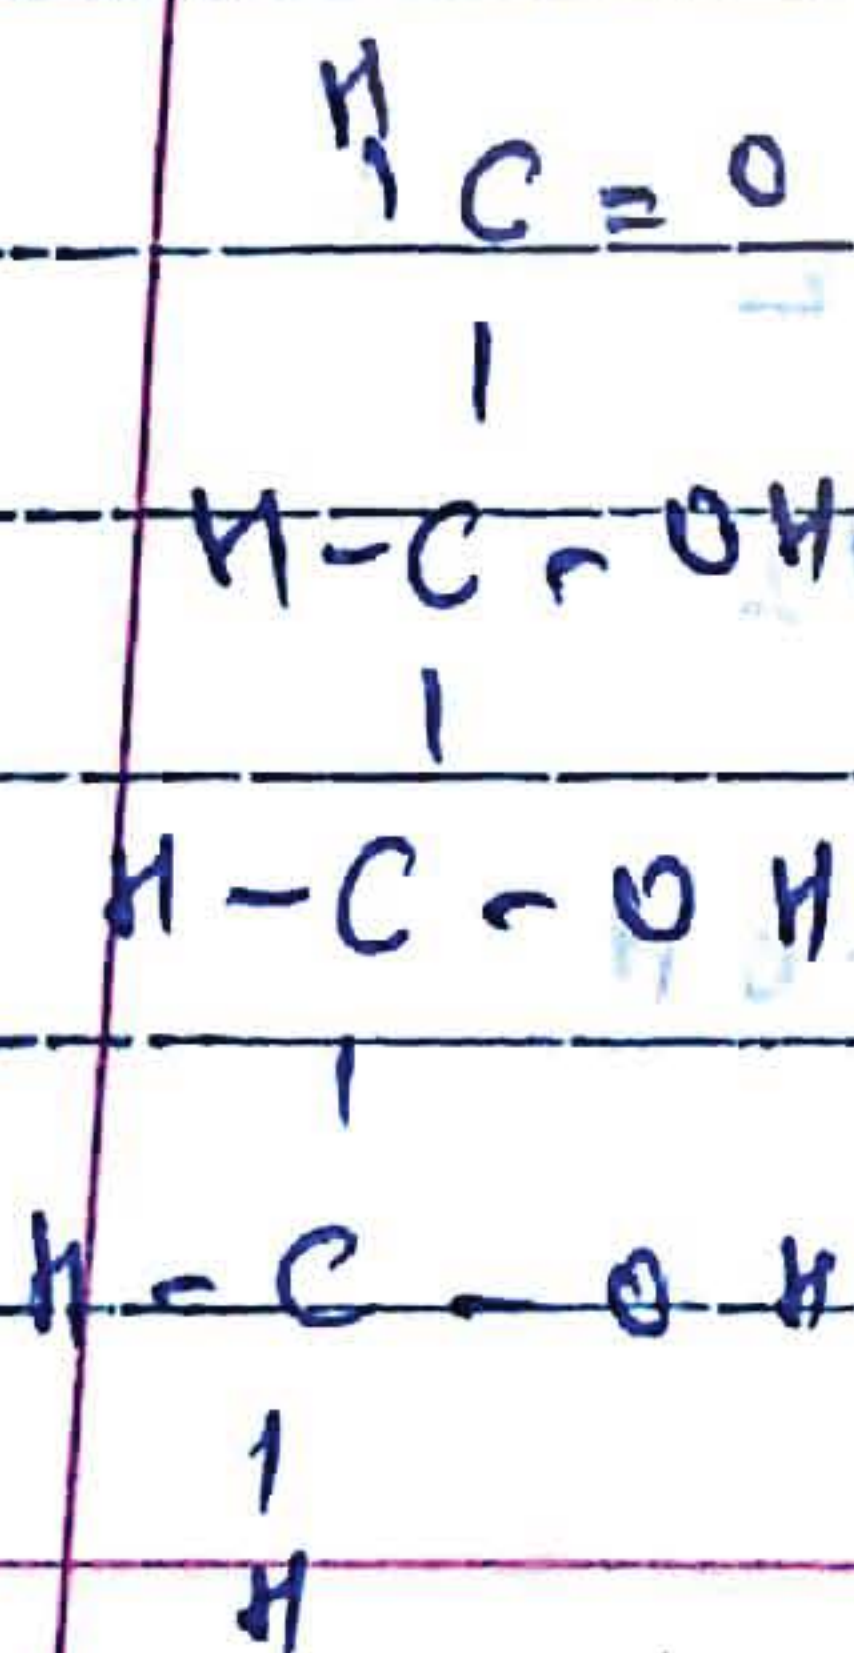 H
C = O
H - C - OH
H - C - OH
H - C - OH
H